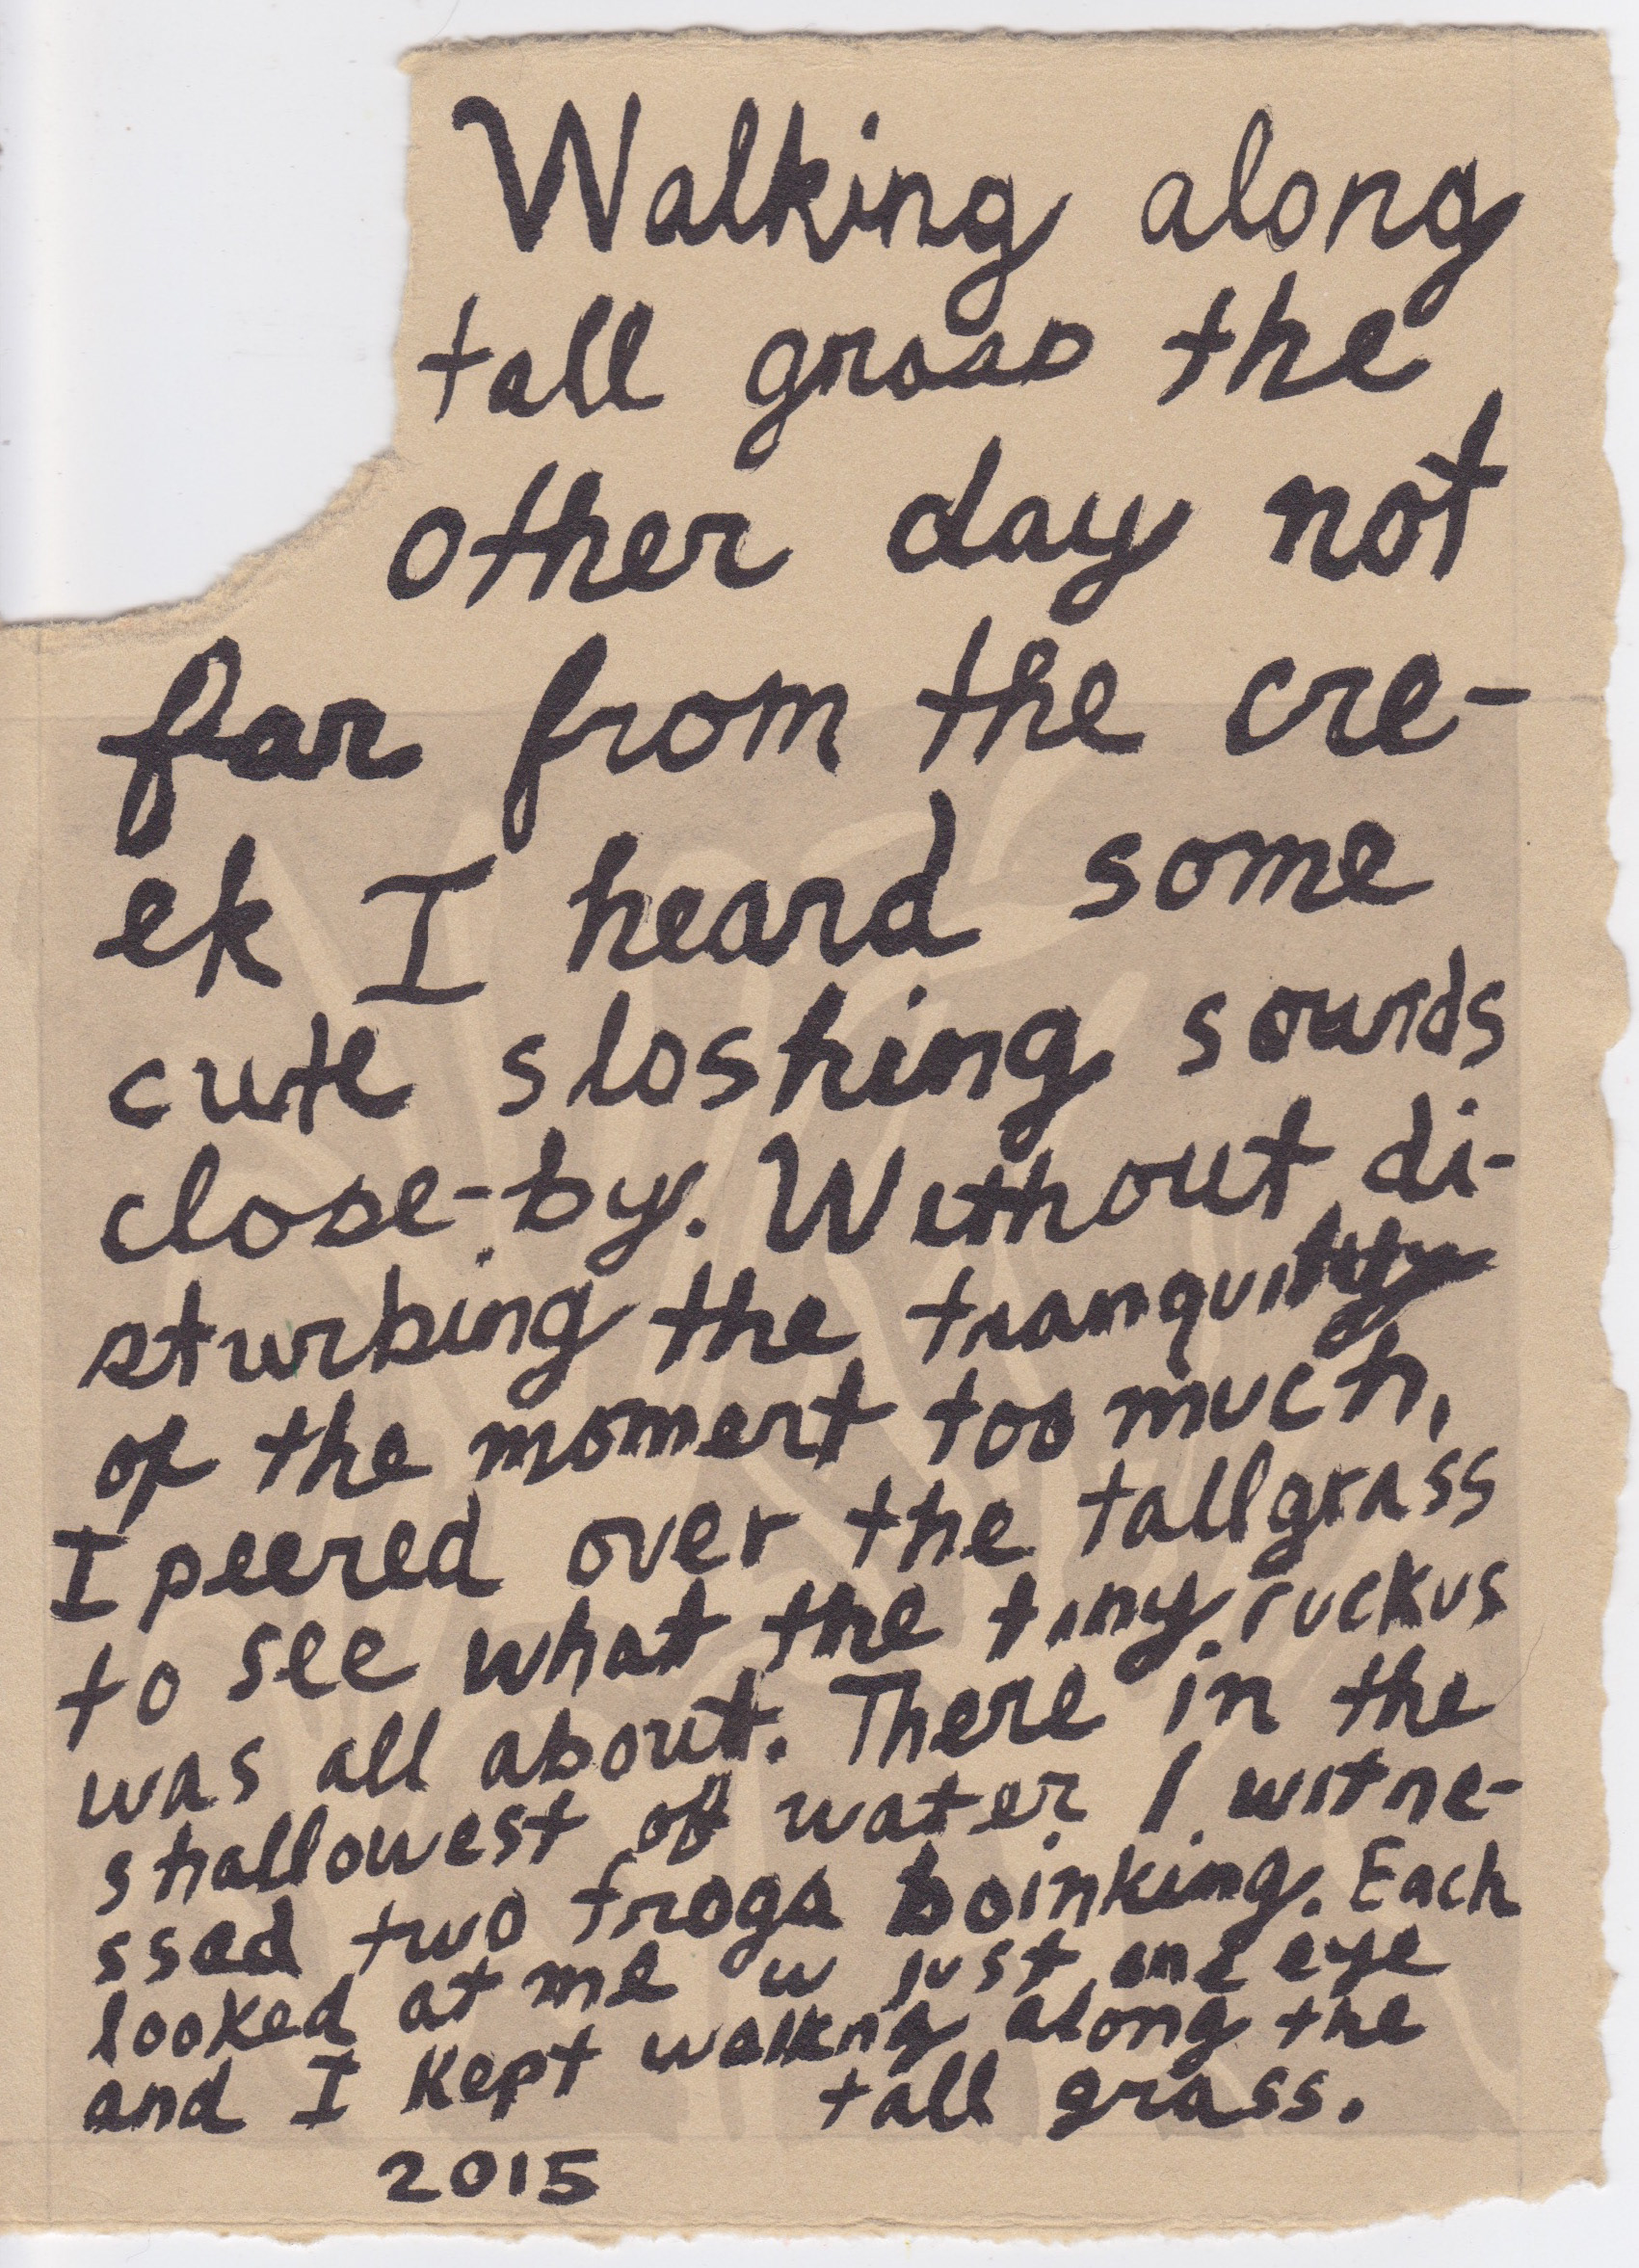 Walking along
tall grass the
other day not
far from the cre-
ek I heard some
cute sloshing sounds
close-by. Without di-
sturbing the tranquility
of the moment too much,
I peered over the tallgrass
to see what the tiny ruckus
was all about. There in the
shallowest of water I witne-
ssed two frogs boinking. Each
looked at me w just one eye
and I kept walkng along the
tall grass.
2015